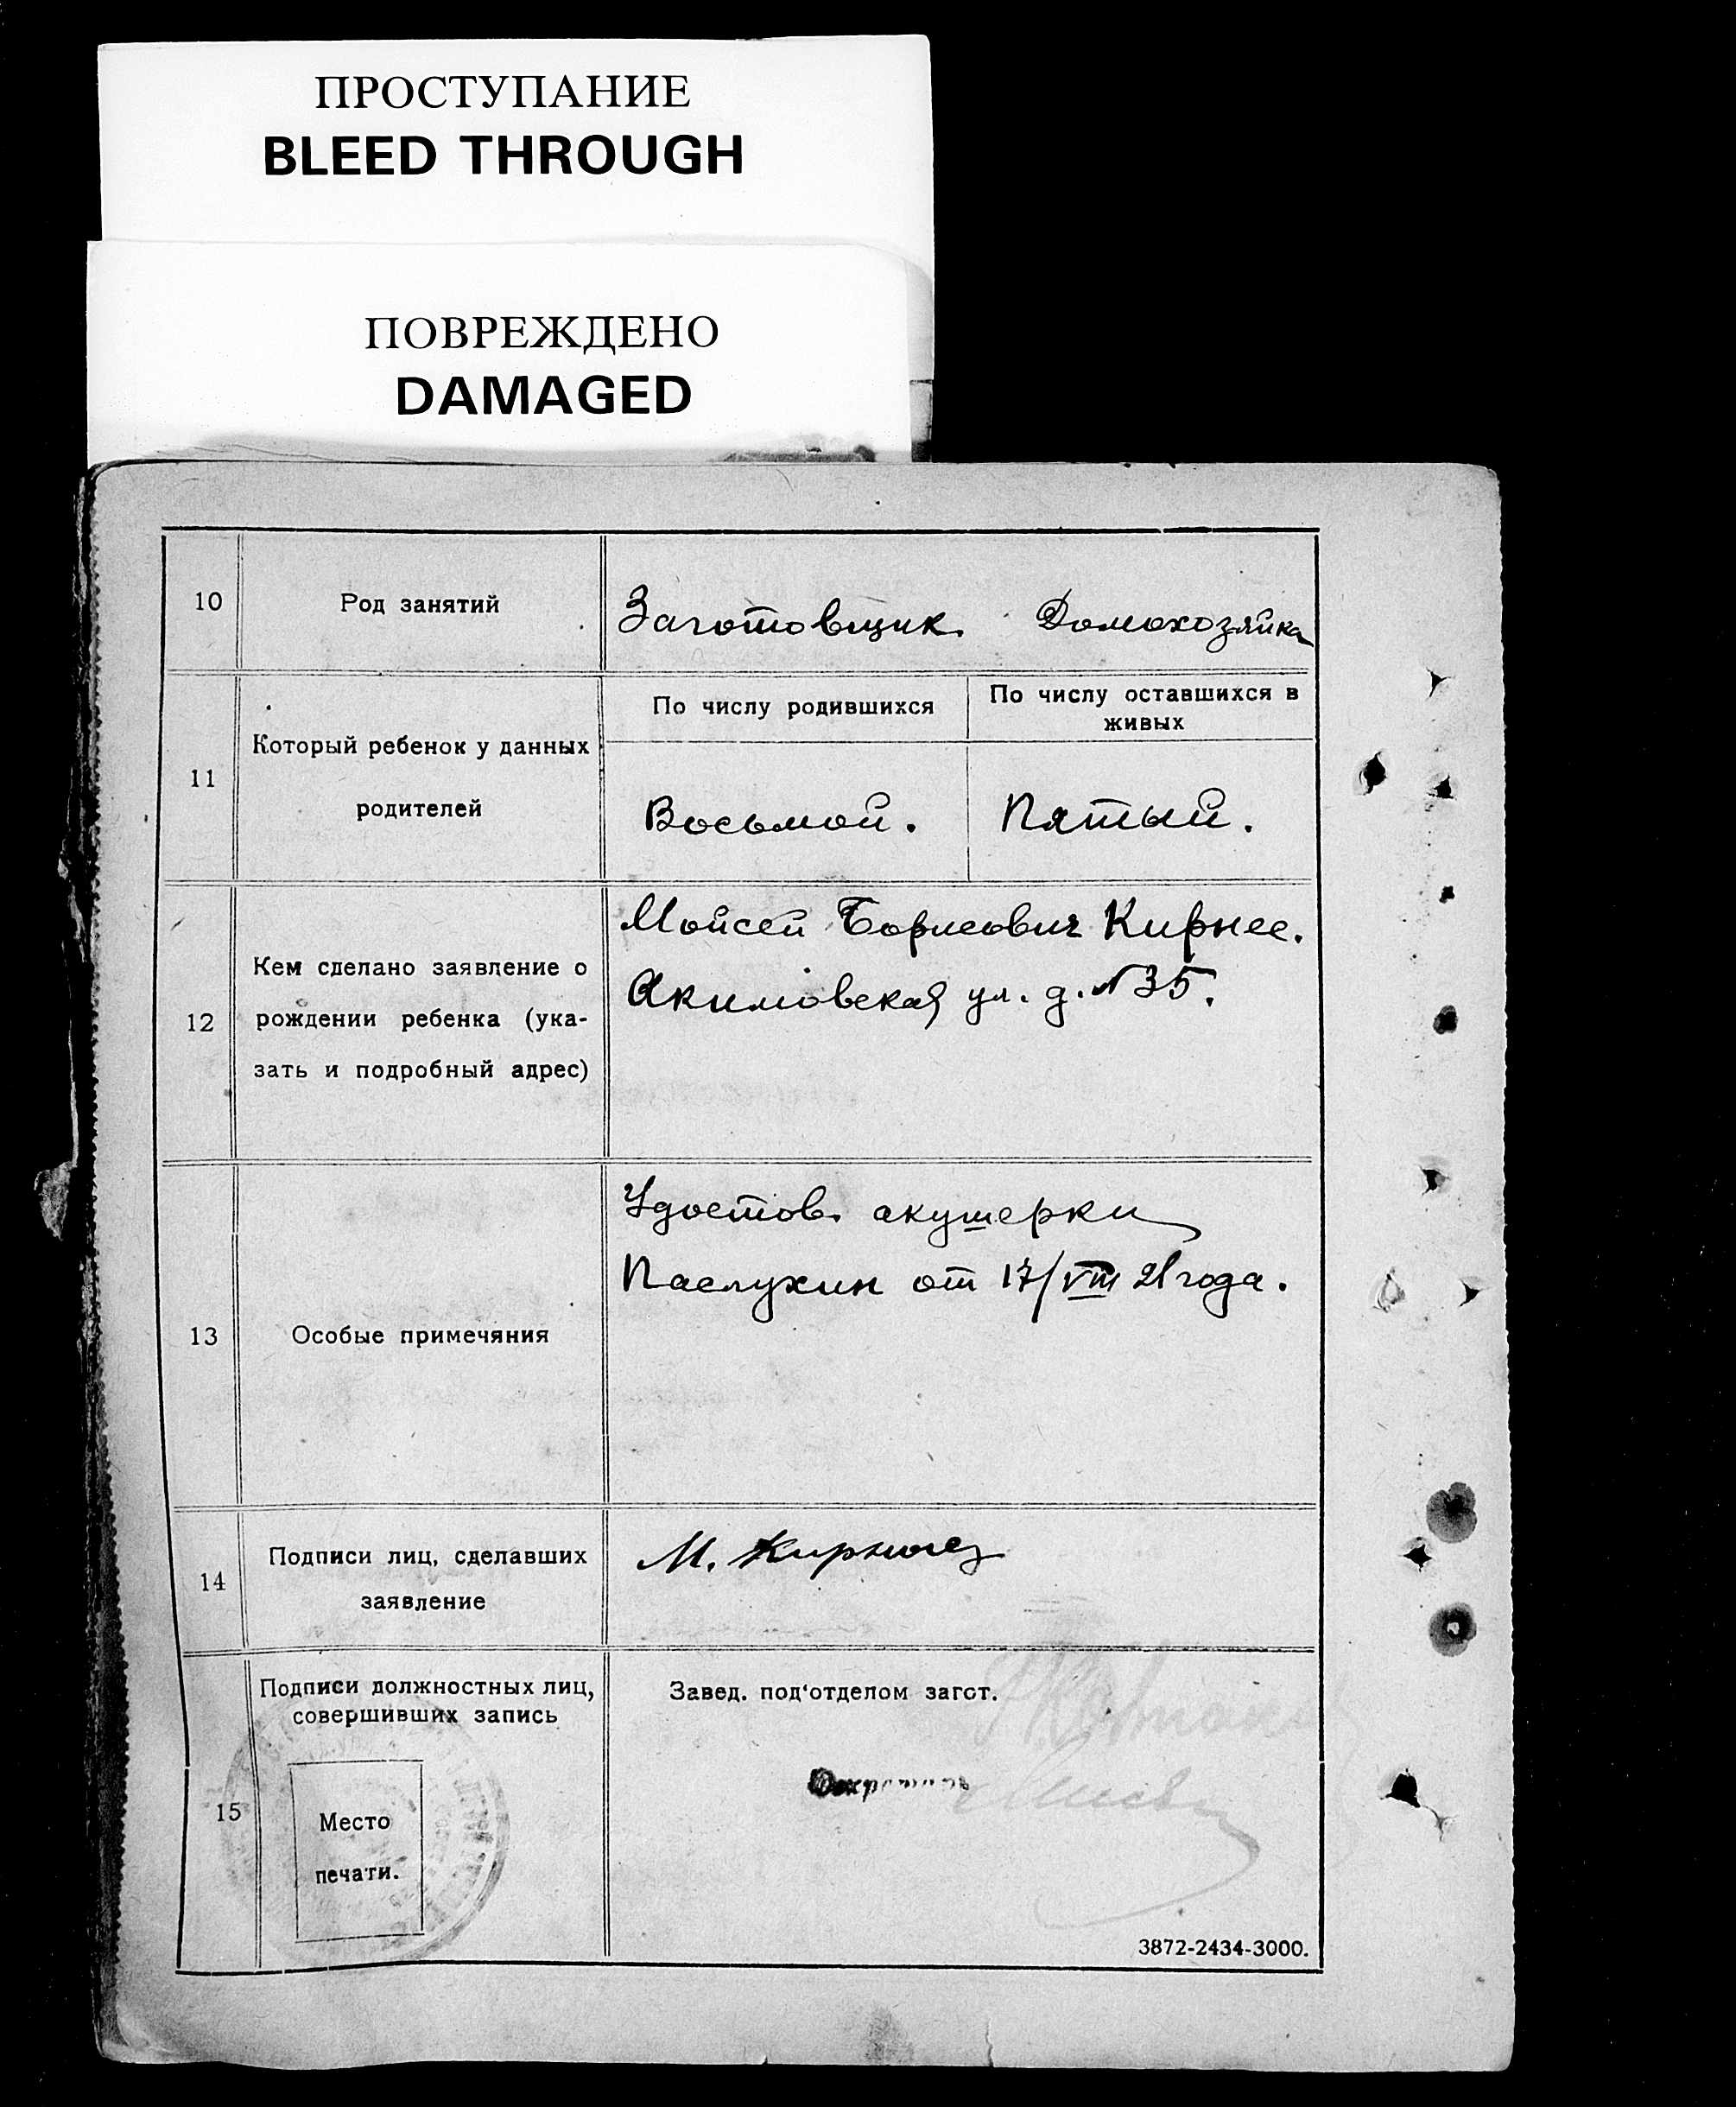 ПРОСТУПАНИЕ
BLEED THROUGH
ПОВРЕЖДЕНО
DAMAGED
10 Род занятий Заготовщик. Домохозяйка
11 Который ребенок у данных родителей
По числу родившихся
По числу оставшихся в
живых
Восьмой. Пятый.
12 Кем сделано заявление о
рождении ребенка (ука-
зать и подробный адрес)
Мойсей Борисович Кирнес.
Акимовская ул. д. №35.
13 Особые примечяния
Удостов. акушерки
Паслухин от 17/VIII 21 года.
14 Подписи лиц, сделавших
заявление
М. Кирнес
15 Подписи должностных лиц,
совершивших запись
Место
печати.
Завед. под'отделом загст.
Секретарь
3872-2434-3000.